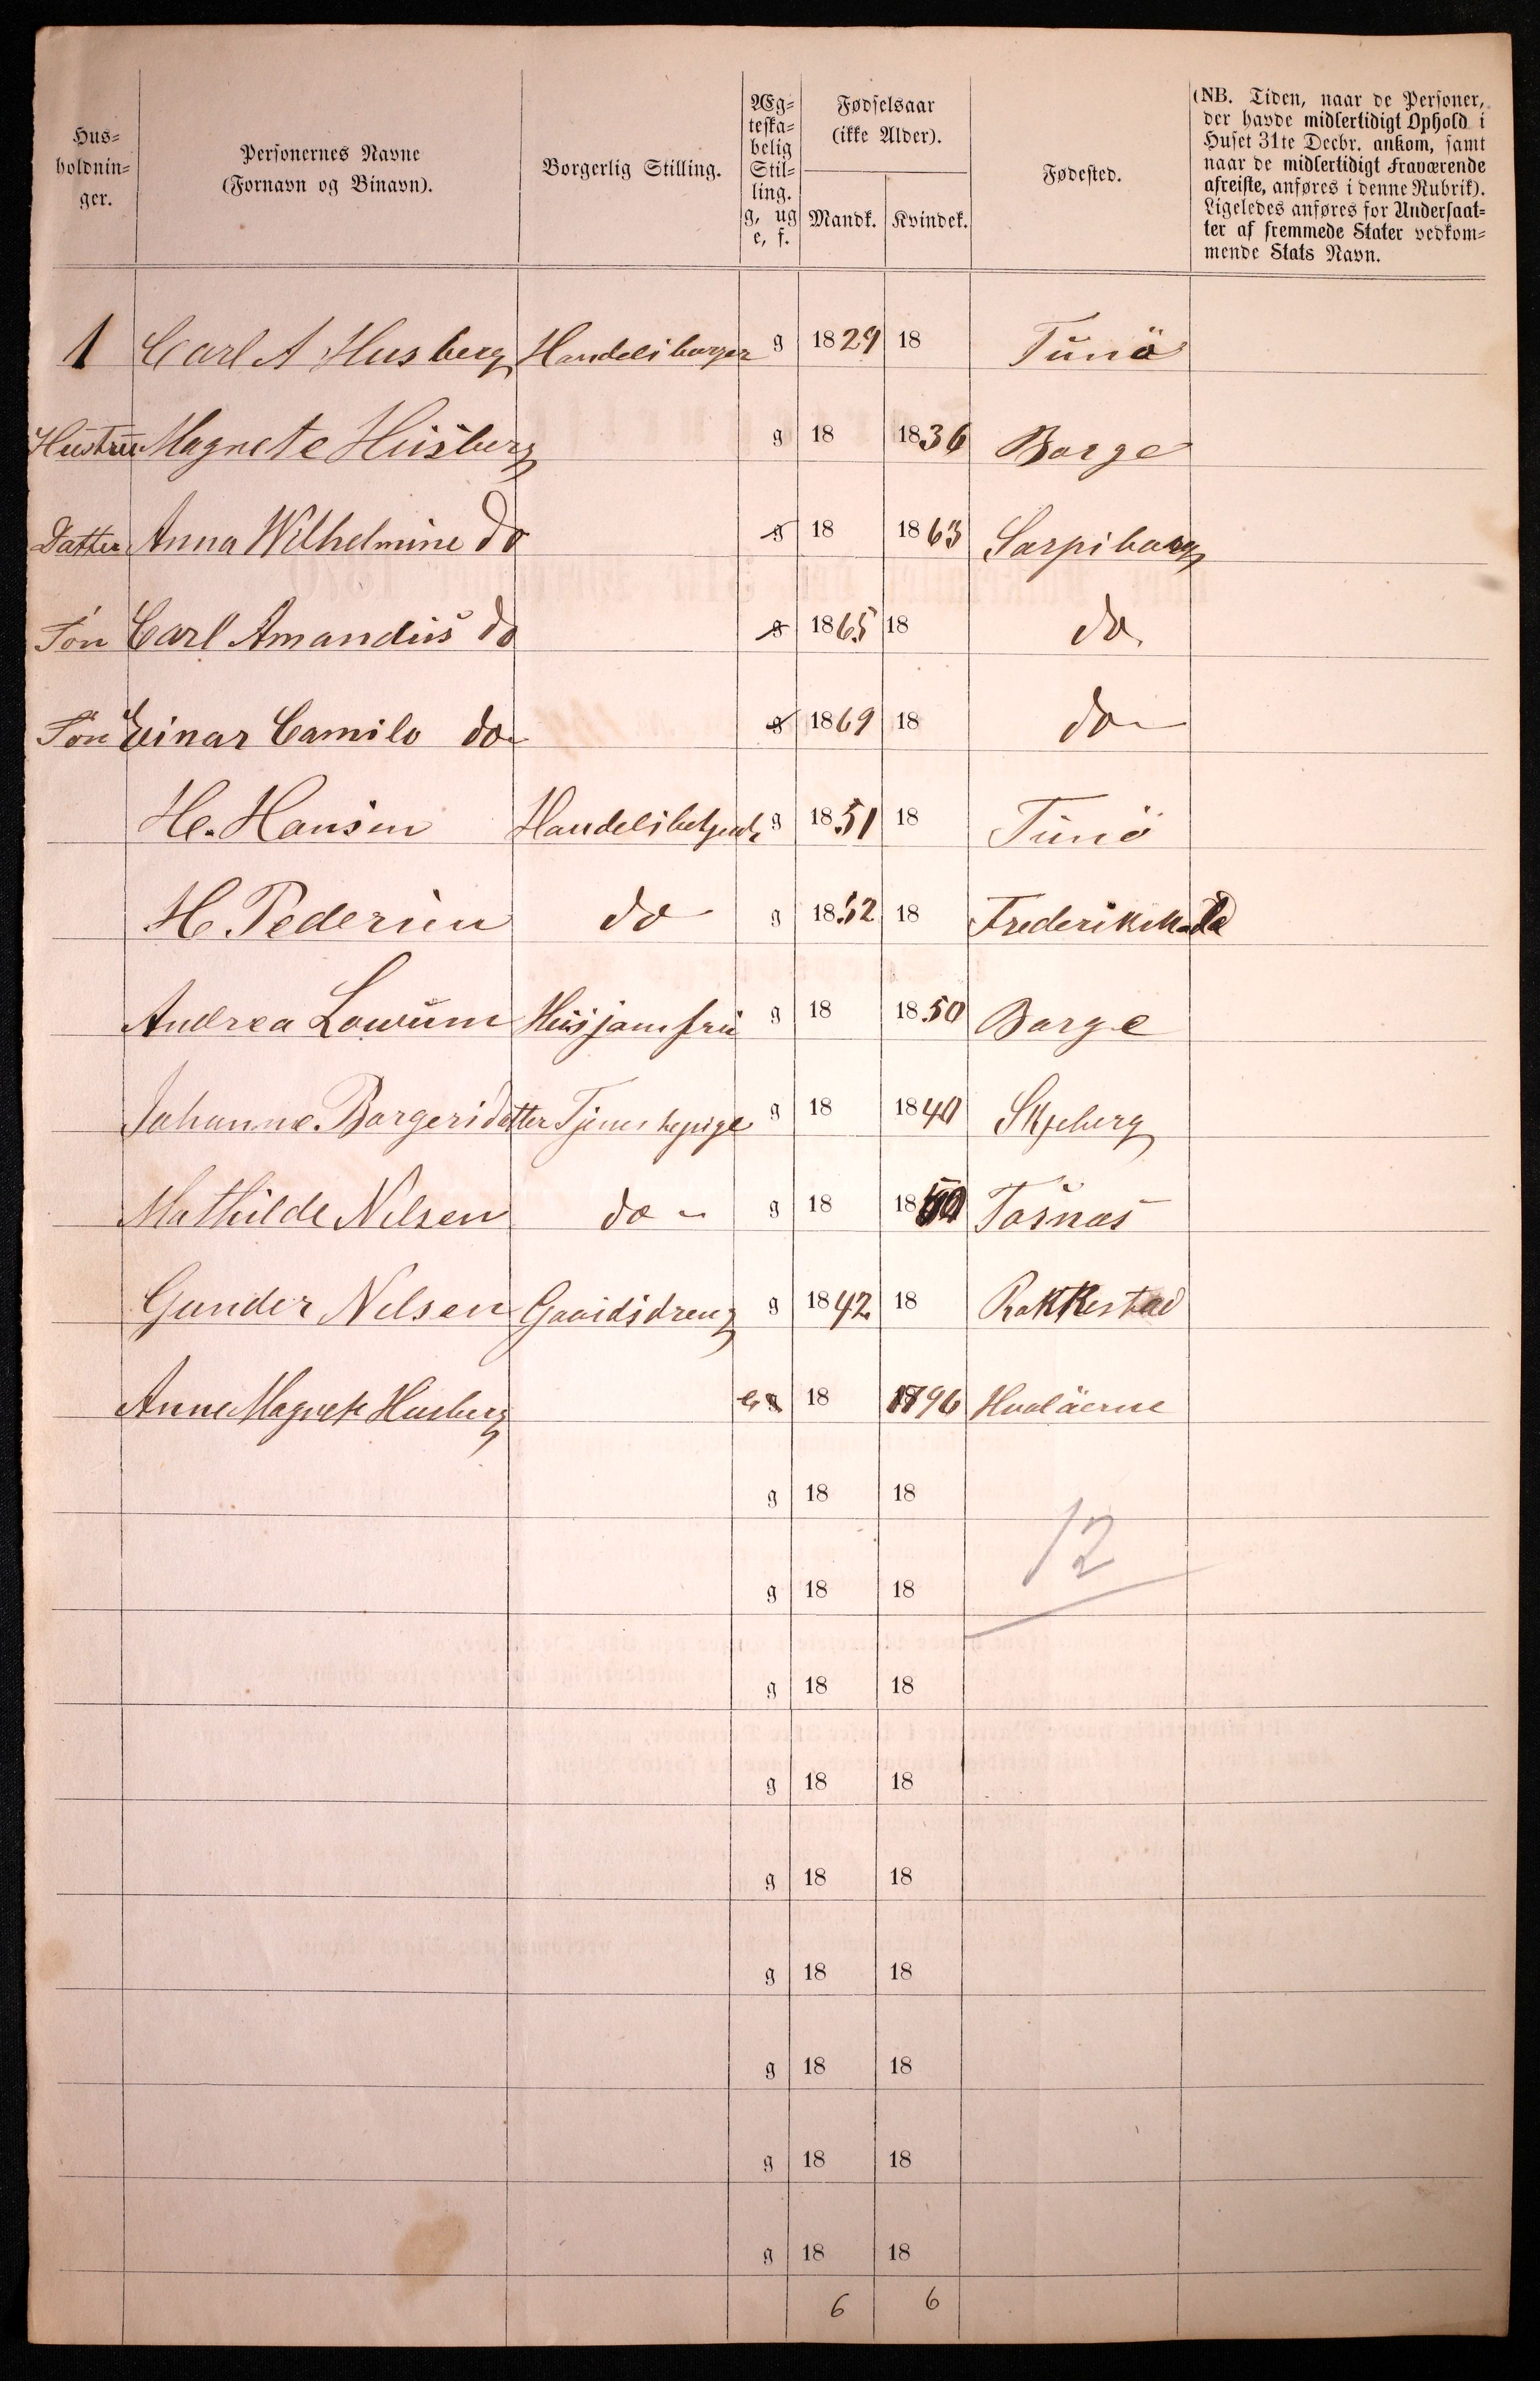 Hus=
holdnin=
ger.
Personernes Navne
(Fornavn og Binavn).
Borgerlig Stilling.
Æg=
teska=
belig
Stil=
ling.
g, ug
e, f.
Fødselsaar
(ikke Alder).
Mandk. Kvindek.
Fødested.
(NB. Tiden, naar de Personer,
der havde midlertidigt Ophold i
Huset 31te Decbr. ankom, samt
naar de midlertidigt Fraværende
afreiste, anføres i denne Rubrik).
Ligeledes anføres for Undersaat=
ter af fremmede Stater vedkom=
mende Stats Navn.
1 Carl A Husberg Handelsborger g 1829 18 Tunö
Hustru Magnete Husberg g 18 1836 Borge
Datter Anna Wilhelmine do g 18 1863 Sarpsborg
Søn Carl Amandus do g 1865 18 do
Søn Einar Camilo do g 1869 18 do
H. Hansen Handelsbetjent g 1851 18 Tunö
H Pedersen do g 1852 18 Frederikstad
Andrea Lowum Husjomfru g 18 1850 Borge
Johanne Borgersdatter Tjenestepige g 18 1840 Skjeberg
Mathilde Nilsen do g 18 18 Tosnæs
Gunder Nilsen Gaardsdreng g 1842 18 Rakkestad
Anne Magnete Husberg e g 18 1796 Hvaløerne
g 18 18
12
g 18 18
g 18 18
g 18 18
g 18 18
g 18 18
g 18 18
g 18 18
g 18 18
6 6